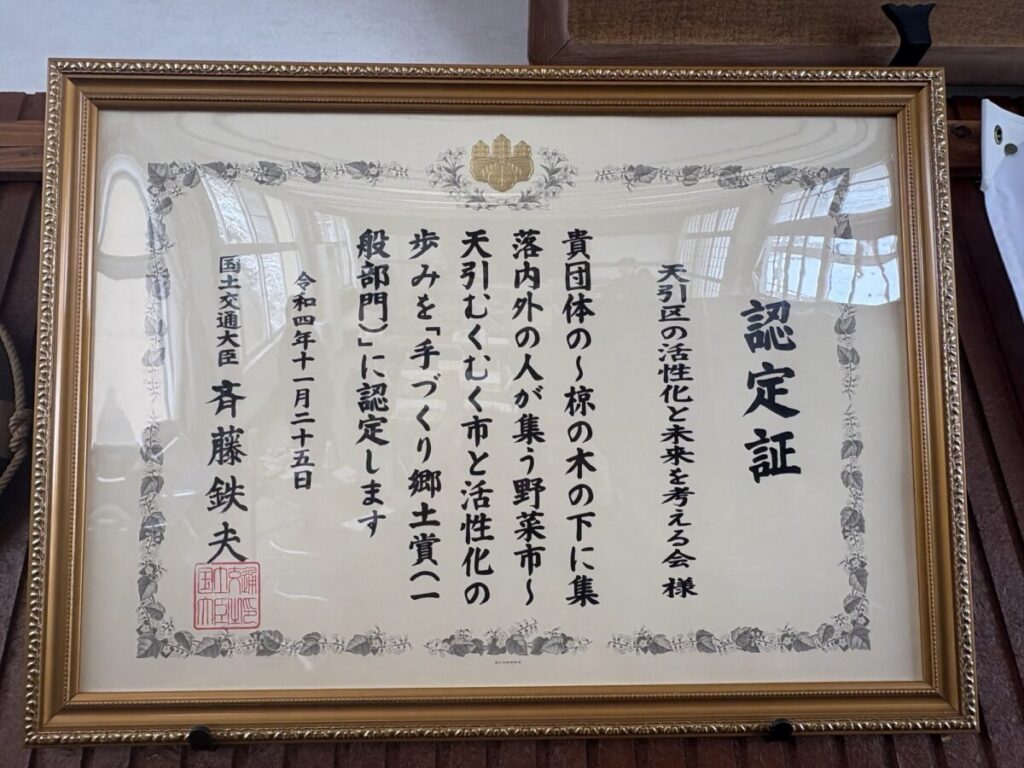 認定証
天引区の活性化と未来を考える会 様
貴団体の～椋の木の下に集
落内外の人が集う野菜市～
天引むくむく市と活性化の
歩みを「手づくり郷土賞(一
般部門)」に認定します
令和四年十一月二十五日
国土交通大臣 斉藤鉄夫